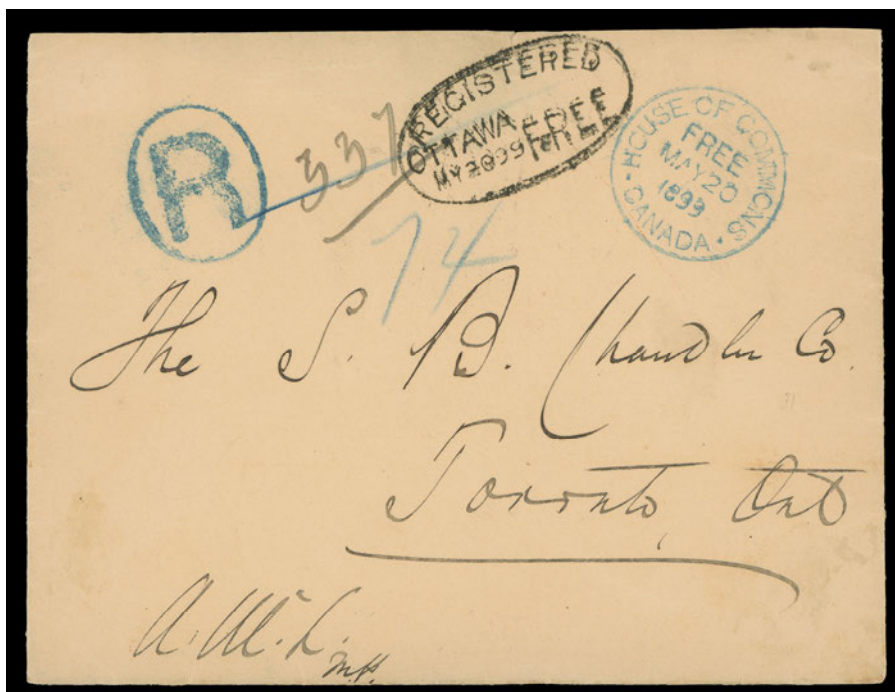 REGISTERED
OTTAWA FREE
MY 20 99
HOUSE OF COMMONS
FREE
MAY 20
1899
CANADA
R
337
74
The S. B. Chandler Co.
Toronto, Ont
A. Mc. L.
M.P.